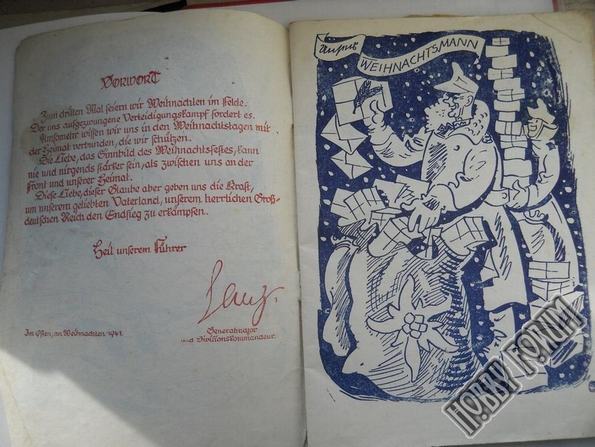 Vorwort
Zum dritten Mal feiern wir Weihnachten im Felde.
Der uns aufgezwungene Verteidigungskampf fordert es.
Umsomehr wissen wir uns in den Weihnachtstagen mit
der Heimat verbunden, die wir schützen.
Die Liebe, das Sinnbild des Weihnachtsfestes, kann
nie und nirgends stärker sein, als zwischen uns an der
Front und unserer Heimat.
Diese Liebe, dieser Glaube aber geben uns die Kraft,
um unserem geliebten Vaterland, unserem herrlichen Groß-
deutschen Reich den Endsieg zu erkämpfen.
Heil unserem Führer
Im Osten, an Weihnachten 1941.
Generalmajor
und Divisionskommandeur.
Unser
WEIHNACHTSMANN
HOBBY FORUM